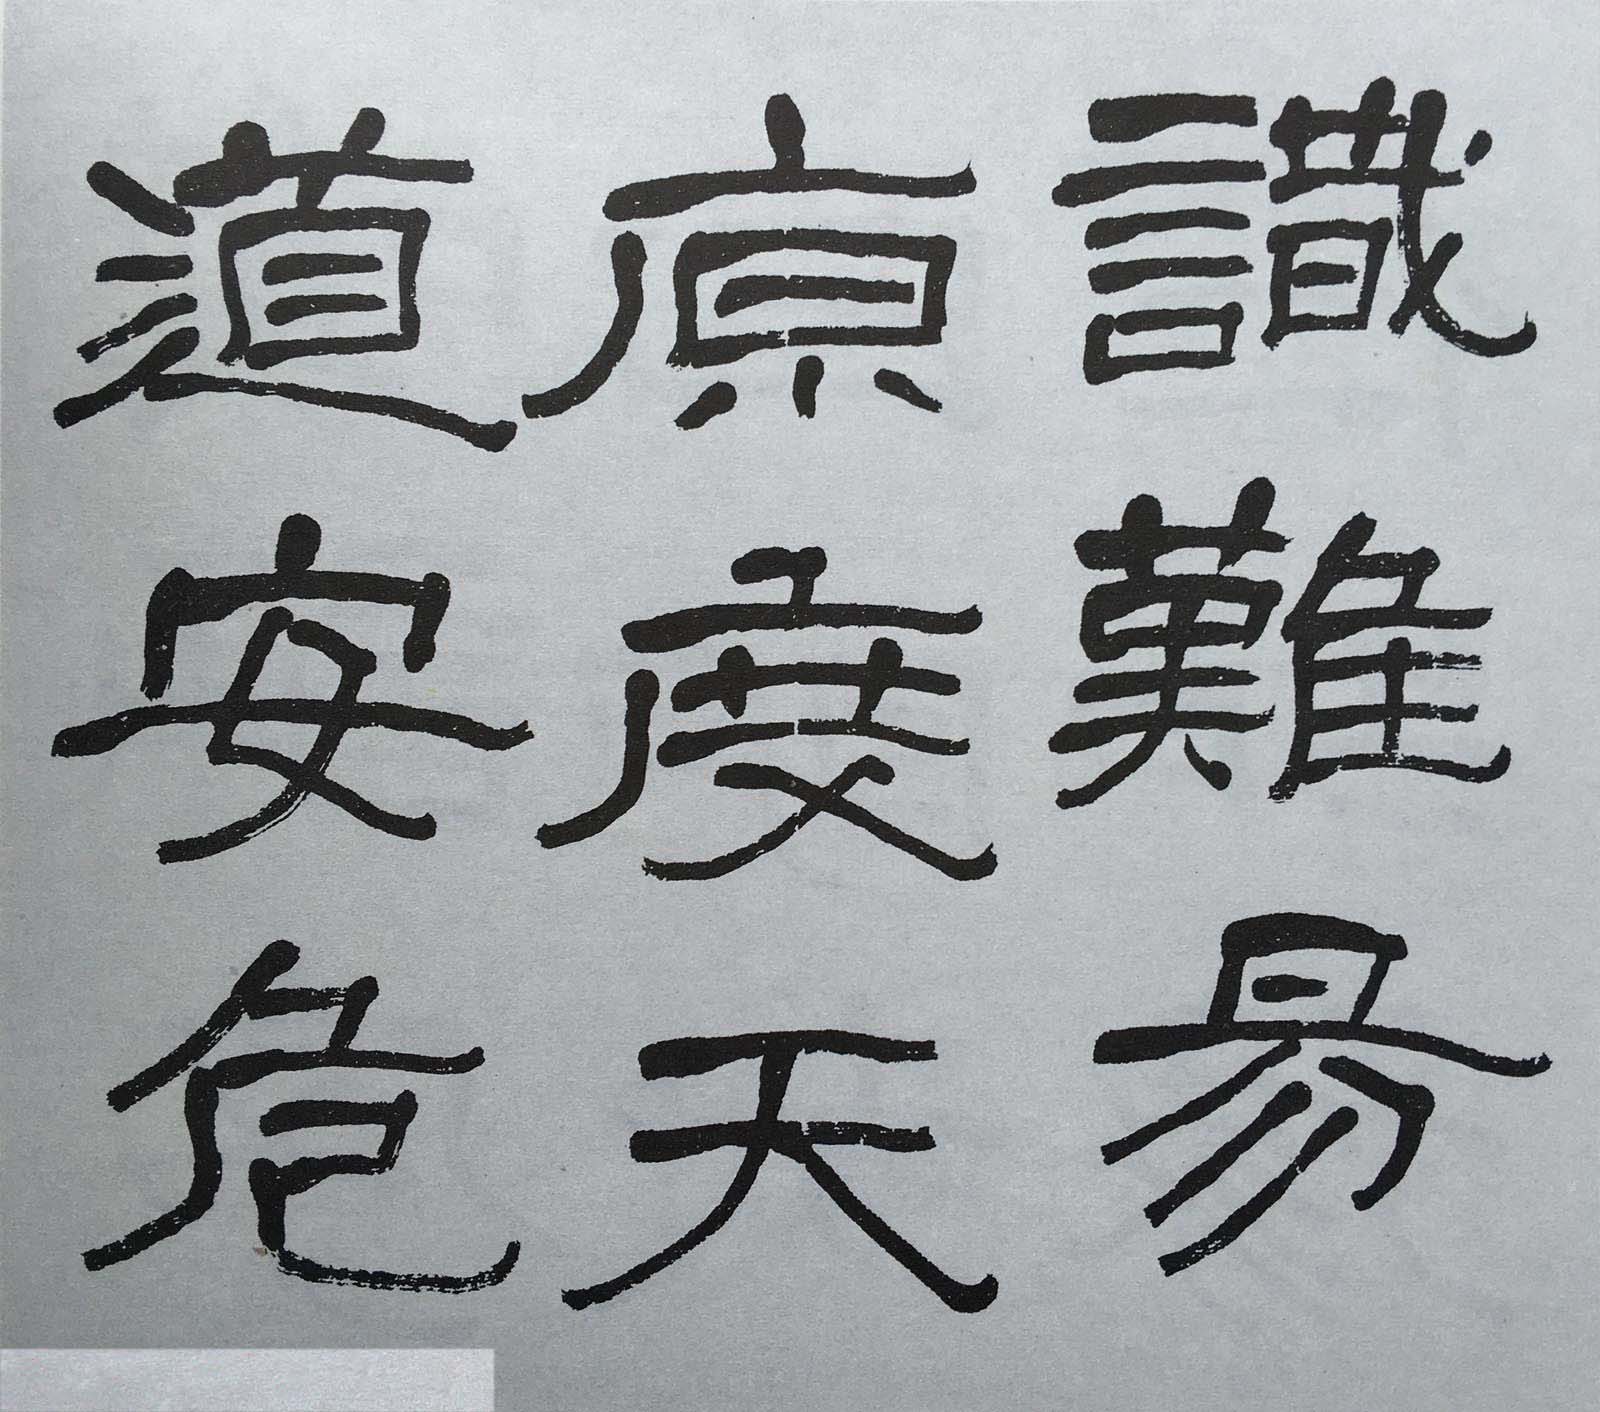 識難易
原度天
道安危